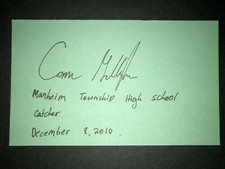 Manheim Township High school
catcher
December 8, 2010.